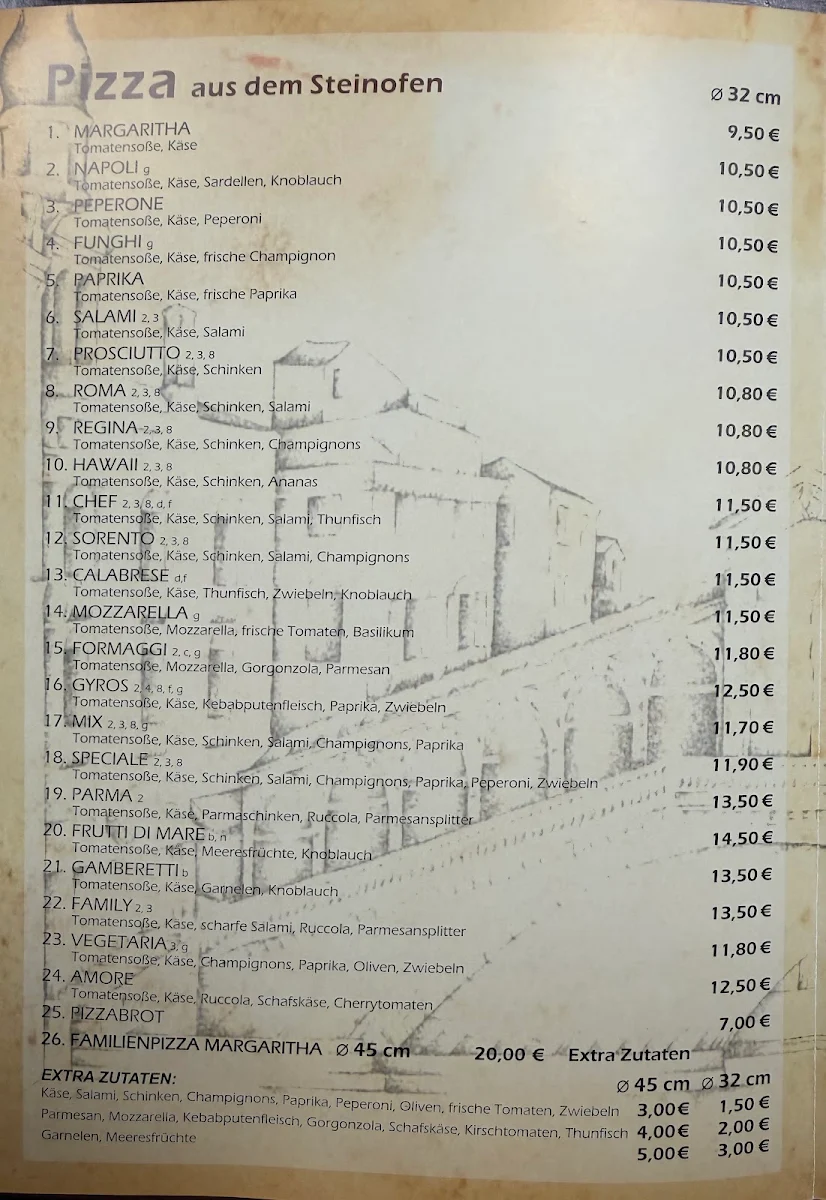 Pizza aus dem Steinofen
Ø 32 cm
1. MARGARITHA 9,50 €
Tomatensoße, Käse
2. NAPOLI g 10,50 €
Tomatensoße, Käse, Sardellen, Knoblauch
3. PEPERONE 10,50 €
Tomatensoße, Käse, Peperoni
4. FUNGHI g 10,50 €
Tomatensoße, Käse, frische Champignon
5. PAPRIKA 10,50 €
Tomatensoße, Käse, frische Paprika
6. SALAMI 2, 3 10,50 €
Tomatensoße, Käse, Salami
7. PROSCIUTTO 2, 3, 8 10,50 €
Tomatensoße, Käse, Schinken
8. ROMA 2, 3, 8 10,80 €
Tomatensoße, Käse, Schinken, Salami
9. REGINA 2, 3, 8 10,80 €
Tomatensoße, Käse, Schinken, Champignons
10. HAWAII 2, 3, 8 10,80 €
Tomatensoße, Käse, Schinken, Ananas
11. CHEF 2, 3, 8, d, f 11,50 €
Tomatensoße, Käse, Schinken, Salami, Thunfisch
12. SORENTO 2, 3, 8 11,50 €
Tomatensoße, Käse, Schinken, Salami, Champignons
13. CALABRESE d,f 11,50 €
Tomatensoße, Käse, Thunfisch, Zwiebeln, Knoblauch
14. MOZZARELLA g 11,50 €
Tomatensoße, Mozzarella, frische Tomaten, Basilikum
15. FORMAGGI 2, c, g 11,80 €
Tomatensoße, Mozzarella, Gorgonzola, Parmesan
16. GYROS 2, 4, 8, f, g 12,50 €
Tomatensoße, Käse, Kebabputenfleisch, Paprika, Zwiebeln
17. MIX 2, 3, 8, g 11,70 €
Tomatensoße, Käse, Schinken, Salami, Champignons, Paprika
18. SPECIALE 2, 3, 8 11,90 €
Tomatensoße, Käse, Schinken, Salami, Champignons, Paprika, Peperoni, Zwiebeln
19. PARMA 2 13,50 €
Tomatensoße, Käse, Parmaschinken, Ruccola, Parmesansplitter
20. FRUTTI DI MARE b, n 14,50 €
Tomatensoße, Käse, Meeresfrüchte, Knoblauch
21. GAMBERETTI b 13,50 €
Tomatensoße, Käse, Garnelen, Knoblauch
22. FAMILY 2, 3 13,50 €
Tomatensoße, Käse, scharfe Salami, Ruccola, Parmesansplitter
23. VEGETARIA 3, g 11,80 €
Tomatensoße, Käse, Champignons, Paprika, Oliven, Zwiebeln
24. AMORE 12,50 €
Tomatensoße, Käse, Ruccola, Schafskäse, Cherrytomaten
25. PIZZABROT 7,00 €
26. FAMILIENPIZZA MARGARITHA Ø 45 cm 20,00 € Extra Zutaten
EXTRA ZUTATEN: Ø 45 cm Ø 32 cm
Käse, Salami, Schinken, Champignons, Paprika, Peperoni, Oliven, frische Tomaten, Zwiebeln 3,00 € 1,50 €
Parmesan, Mozzarella, Kebabputenfleisch, Gorgonzola, Schafskäse, Kirschtomaten, Thunfisch 4,00 € 2,00 €
Garnelen, Meeresfrüchte 5,00 € 3,00 €